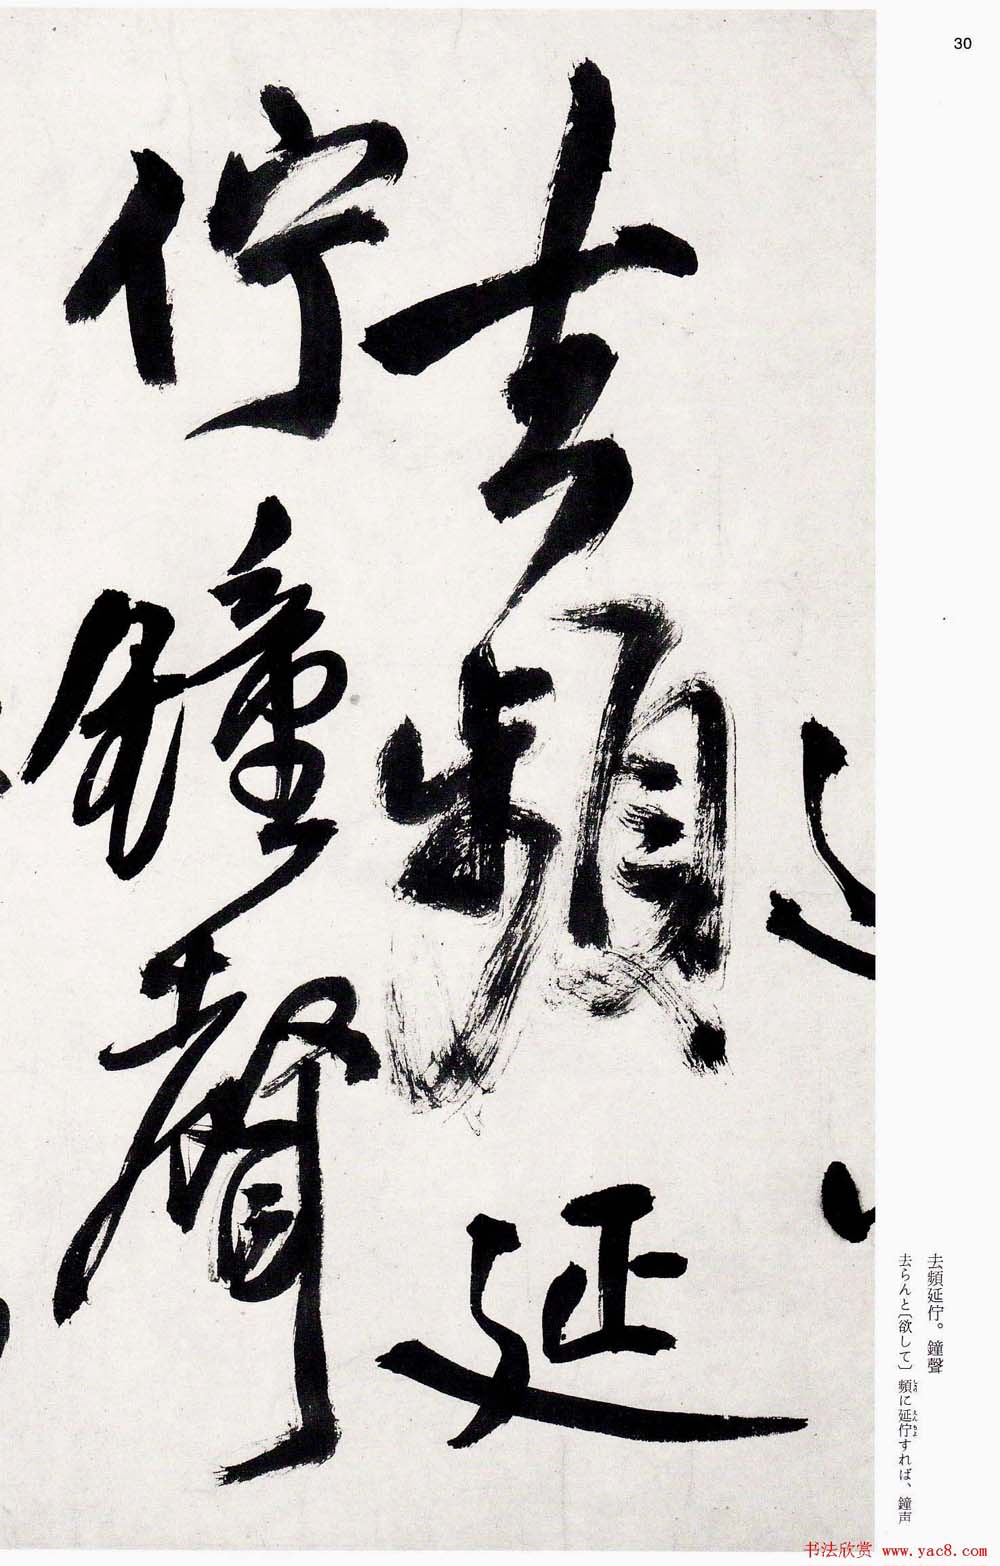 30
去頻延
佇鐘聲
去頻延佇。鐘聲
去らんと〔欲して〕頻に延佇すれば、鐘声
书法欣赏 www.yac8.com